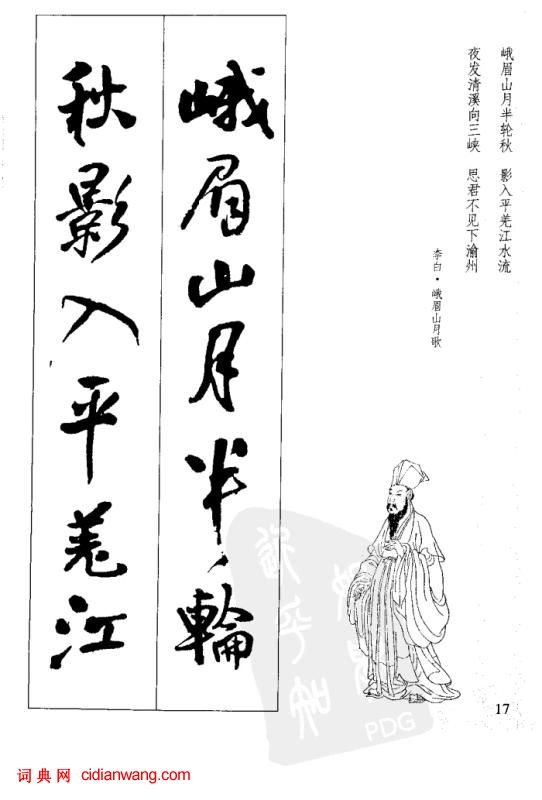 峨眉山月半轮秋　影入平羌江水流
夜发清溪向三峡　思君不见下渝州
李白·峨眉山月歌
峨眉山月半輪
秋影入平羌江
17
PDG
词典网 cidianwang.com